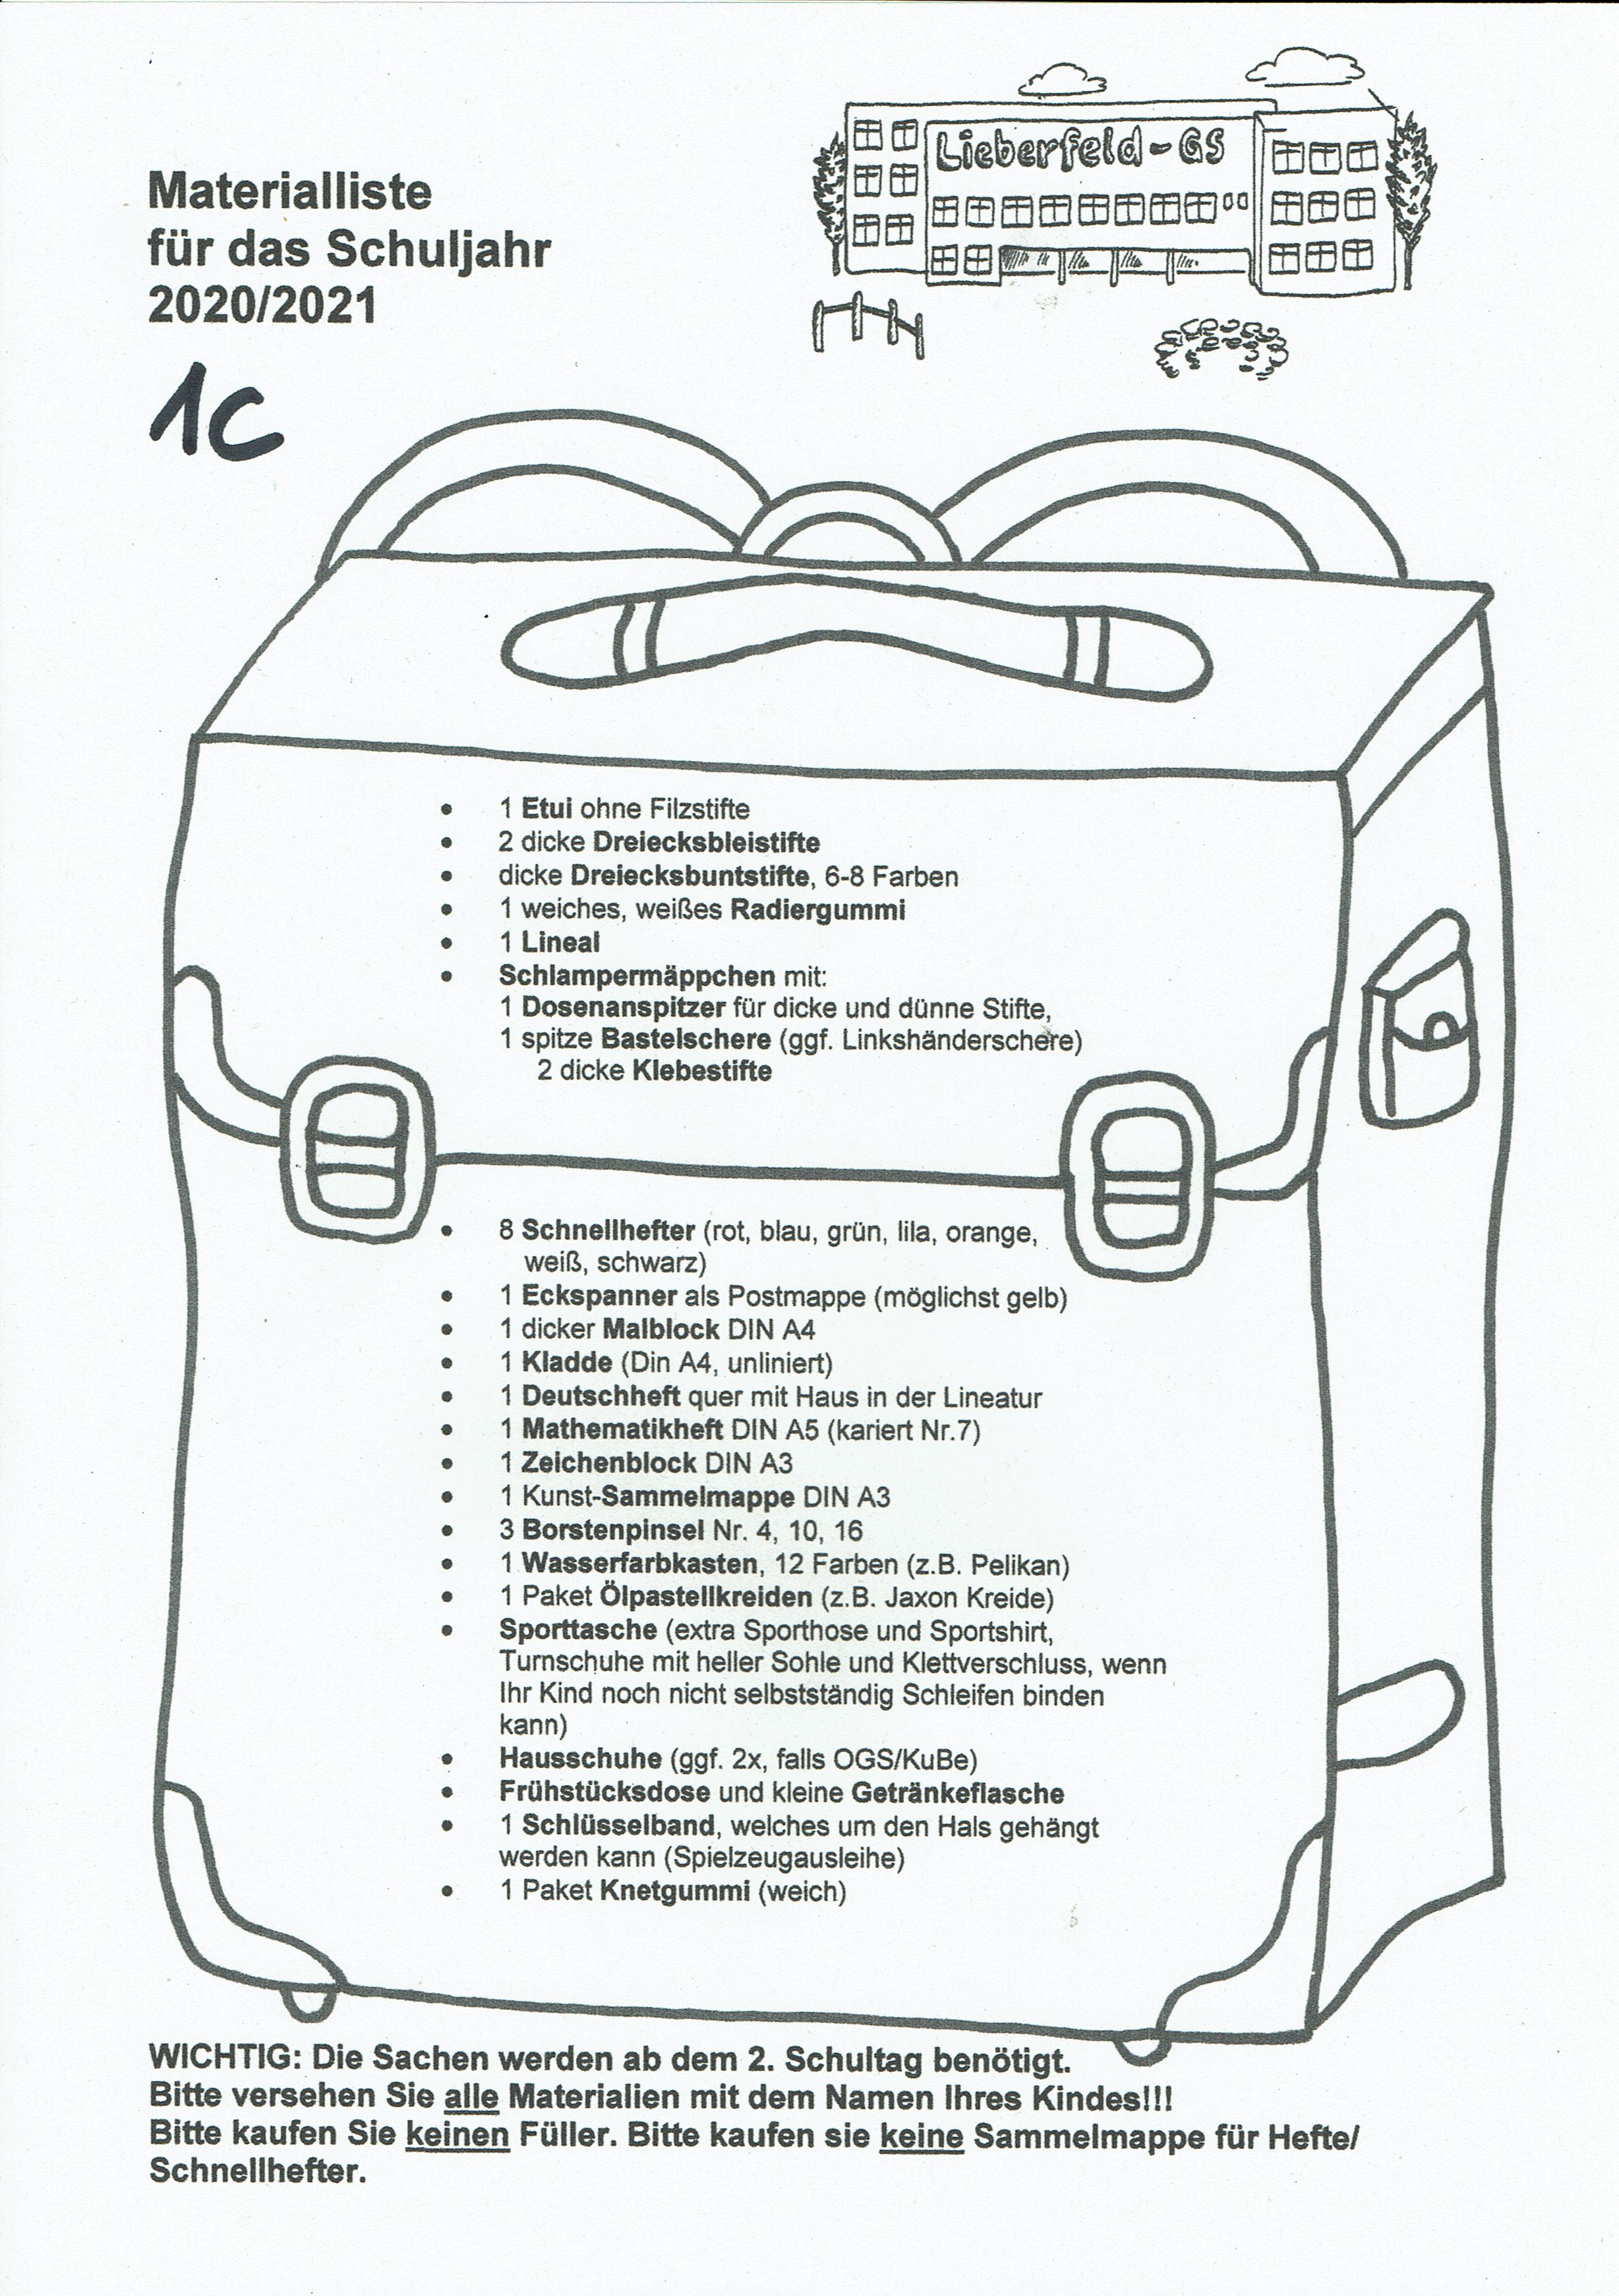 Lieberfeld-GS
Materialliste
für das Schuljahr
2020/2021
1C
• 1 Etui ohne Filzstifte
• 2 dicke Dreiecksbleistifte
• dicke Dreiecksbuntstifte, 6-8 Farben
• 1 weiches, weißes Radiergummi
• 1 Lineal
• Schlampermäppchen mit:
1 Dosenanspitzer für dicke und dünne Stifte,
1 spitze Bastelschere (ggf. Linkshänderschere)
2 dicke Klebestifte
• 8 Schnellhefter (rot, blau, grün, lila, orange,
weiß, schwarz)
• 1 Eckspanner als Postmappe (möglichst gelb)
• 1 dicker Malblock DIN A4
• 1 Kladde (Din A4, unliniert)
• 1 Deutschheft quer mit Haus in der Lineatur
• 1 Mathematikheft DIN A5 (kariert Nr.7)
• 1 Zeichenblock DIN A3
• 1 Kunst-Sammelmappe DIN A3
• 3 Borstenpinsel Nr. 4, 10, 16
• 1 Wasserfarbkasten, 12 Farben (z.B. Pelikan)
• 1 Paket Ölpastellkreiden (z.B. Jaxon Kreide)
• Sporttasche (extra Sporthose und Sportshirt,
Turnschuhe mit heller Sohle und Klettverschluss, wenn
Ihr Kind noch nicht selbstständig Schleifen binden
kann)
• Hausschuhe (ggf. 2x, falls OGS/KuBe)
• Frühstücksdose und kleine Getränkeflasche
• 1 Schlüsselband, welches um den Hals gehängt
werden kann (Spielzeugausleihe)
• 1 Paket Knetgummi (weich)
WICHTIG: Die Sachen werden ab dem 2. Schultag benötigt.
Bitte versehen Sie alle Materialien mit dem Namen Ihres Kindes!!!
Bitte kaufen Sie keinen Füller. Bitte kaufen sie keine Sammelmappe für Hefte/
Schnellhefter.